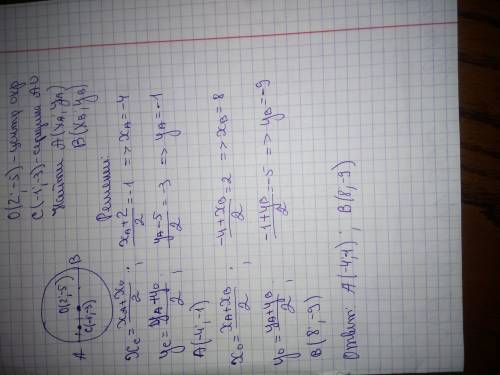 A B
O(2;-5)
C(-1;-3)
O(2;-5)-центр окр
C(-1;-3)-середина AO
Найти: A(xA;yA)
B(xB;yB)
Решение:
xC=(xA+xO)/2; (xA+2)/2=-1 =>xA=-4
yC=(yA+yO)/2; (yA-5)/2=-3 =>yA=-1
A(-4;-1)
xO=(xA+xB)/2; (-4+xB)/2=2 =>xB=8
yO=(yA+yB)/2; (-1+yB)/2=-5 =>yB=-9
B(8;-9)
Ответ: A(-4;-1); B(8;-9)